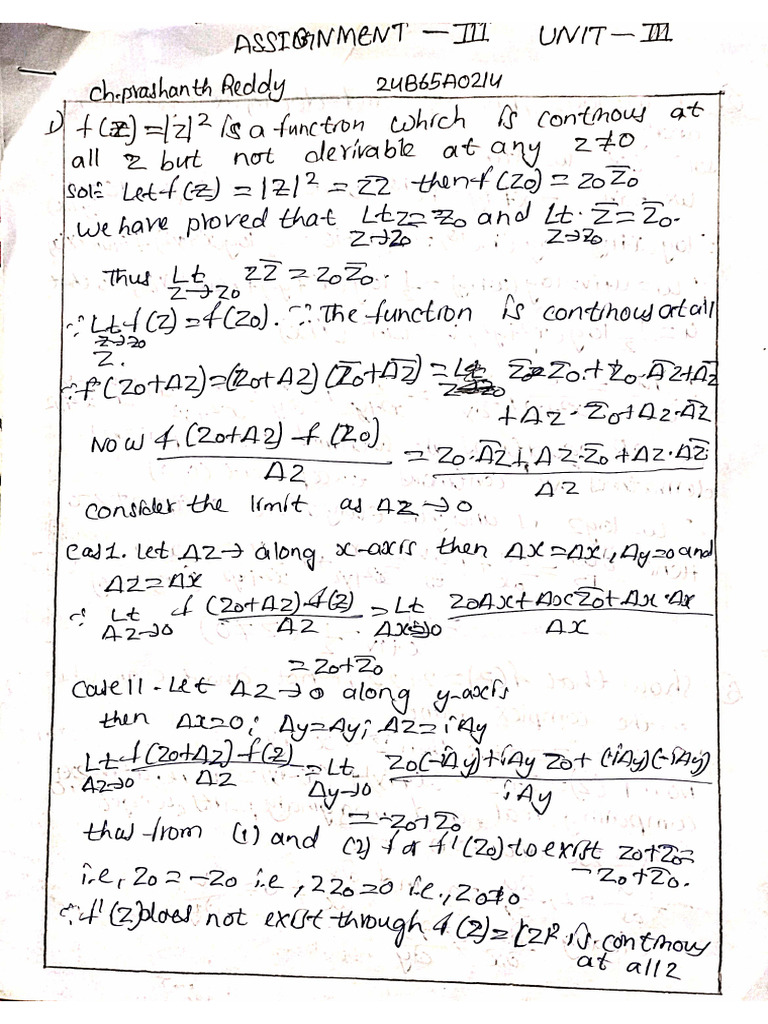 ASSIGNMENT - III UNIT - III
Ch.prashanth Reddy 24B65A0214
1) f(z) = |z|² is a function which is continous at
all z but not derivable at any z≠0
Sol:- Let f(z) = |z|² = zz̅ then f(z₀) = z₀z̅₀
we have proved that Lt z = z₀ and Lt. z̅ = z̅₀.
z→z₀ z→z₀
Thus Lt zz̅ = z₀z̅₀.
z→z₀
∵ Lt f(z) = f(z₀). ∵ The function is continous at all
z→z₀
z.
∵ f(z₀+Δz) = (z₀+Δz) (z̅₀+Δz̅) = z₀ z̅₀ + z₀ . Δz̅ + Δz̅
+ Δz . z̅₀ + Δz . Δz̅
Now f(z₀+Δz) - f(z₀) = z₀ . Δz̅ + Δz . z̅₀ + Δz . Δz̅
Δz Δz
consider the limit as Δz → 0
Cas1. Let Δz → along x-axis then Δx = Δx, Δy=0 and
Δz = Δx
∵ Lt f(z₀+Δz)-f(z) = Lt z₀Δx + Δx z̅₀ + Δx . Δx
Δz→0 Δz Δx→0 Δx
= z₀ + z̅₀
Case II - Let Δz → 0 along y-axis
then Δx=0; Δy=Δy; Δz = iΔy
Lt f(z₀+Δz) - f(z) = Lt z₀(-iΔy) + iΔy z₀ + (iΔy)(-iΔy)
Δz→0 Δz Δy→0 iΔy
= -z₀ + z̅₀
thus from (1) and (2) for f'(z₀) to exist z₀+z̅₀ =
-z₀+z̅₀.
i.e, z₀ = -z₀ i.e, 2z₀ = 0 i.e., z₀≠0
∵ f'(z) does not exist through f(z) = |z|² is continous
at all z